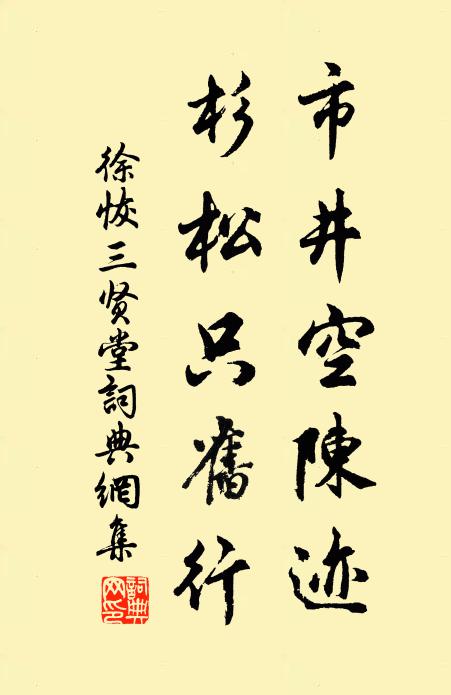 市井空陳迹
杉松只舊行
徐恢三贤堂詞典網集
詞典網印